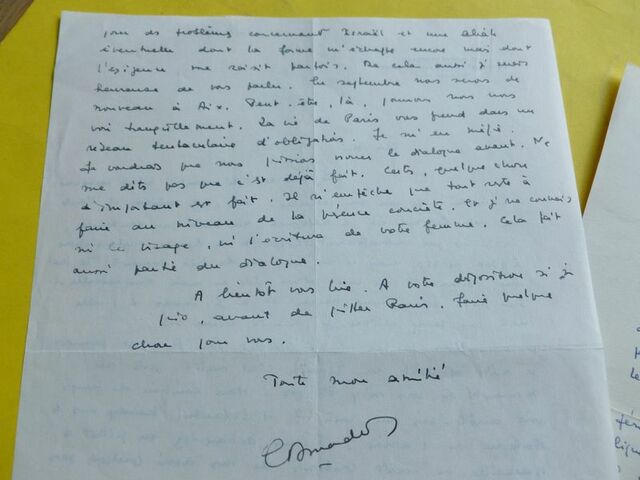 pour des problèmes concernant Israël et une aliah
éventuelle dont la forme m'échappe encore mais dont
l'exigence me saisit parfois. De cela aussi je serais
heureuse de vous parler. En septembre nous serons de
nouveau à Aix. Peut-être, là, pourrons nous nous
voir tranquillement. La vie de Paris vous prend dans un
réseau tentaculaire d'obligations. Je m'en méfie.
Je voudrais que nous puissions nouer le dialogue avant. Ne
me dites pas que c'est déjà fait. Certes, quelque chose
d'important est fait. Il n'empêche que tout reste à
faire au niveau de la présence concrète. Et je ne connais
ni le visage, ni l'écriture de votre femme. Cela fait
aussi partie du dialogue.
A bientôt vous lire. A votre disposition si je
puis, avant de quitter Paris, faire quelque
chose pour vous.
Toute mon amitié